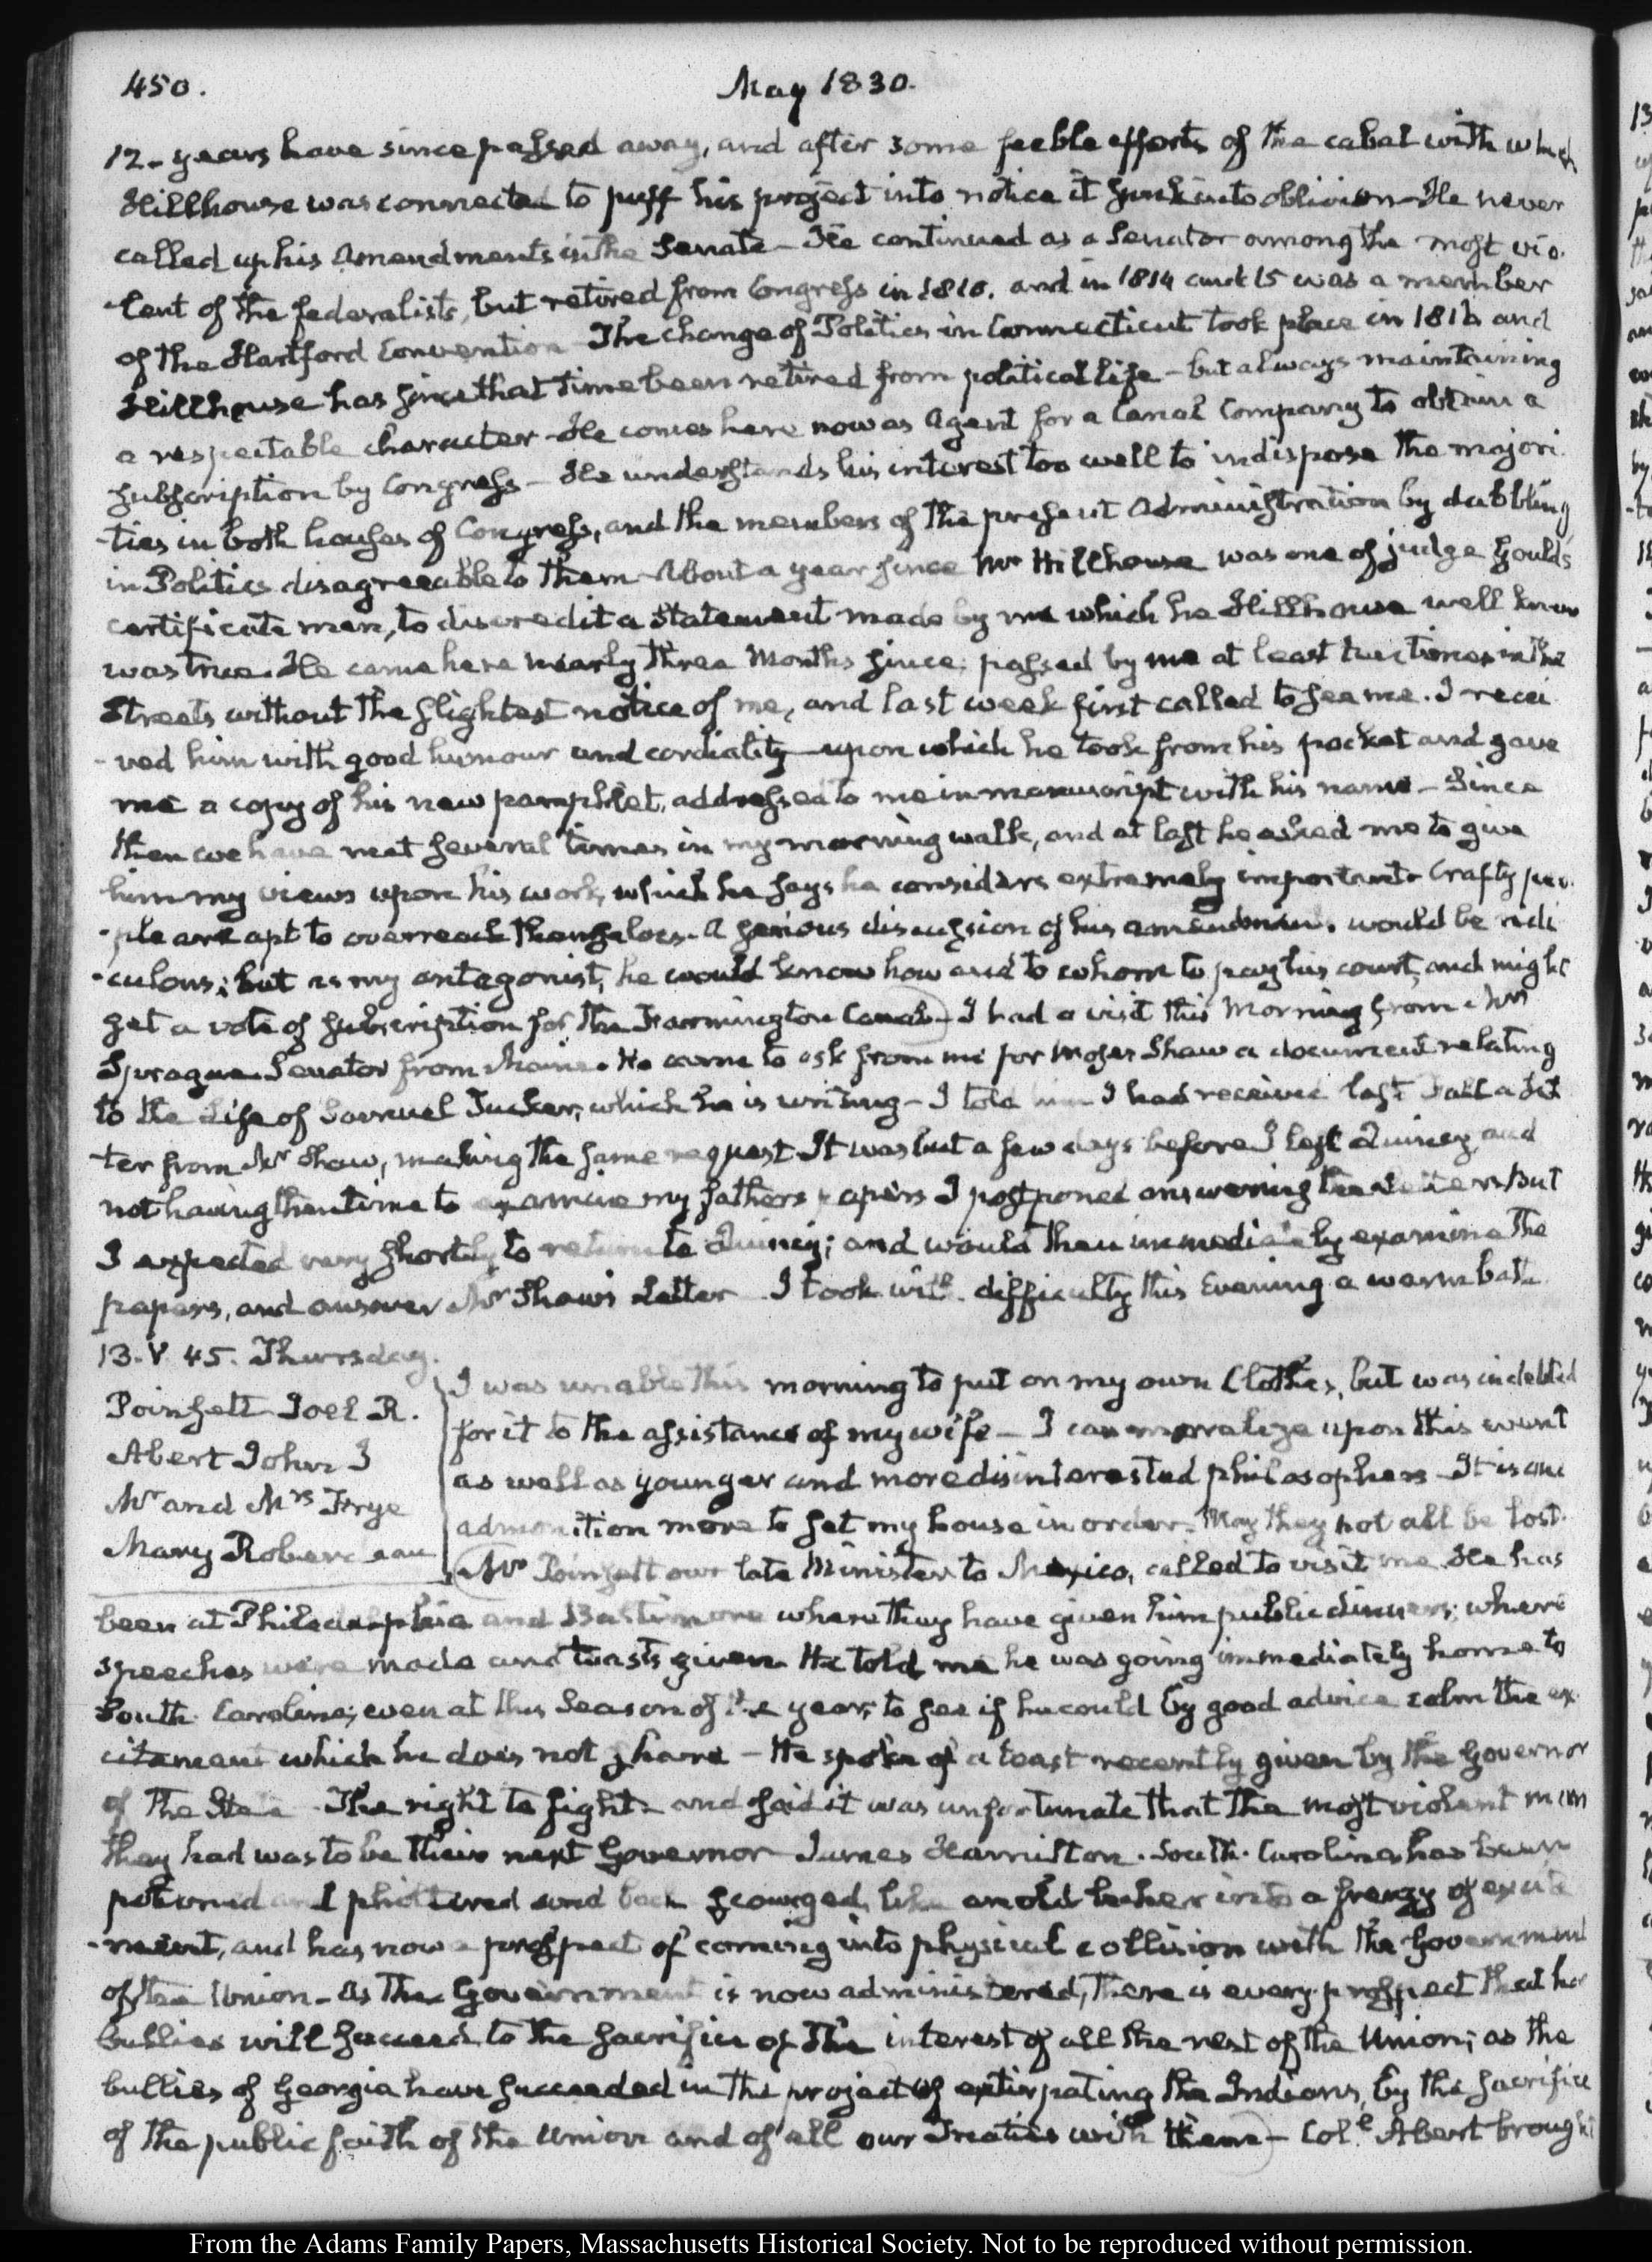 450.
May 1830.
12. years have since passed away, and after some feeble efforts of the cabal with which
Hillhouse was connected to puff his project into notice it sunk into oblivion. He never
called up his Amendments in the Senate. He continued as a Senator among the most vio-
-lent of the federalists, but retired from Congress in 1810. and in 1814 and 15 was a member
of the Hartford Convention. The change of Politics in Connecticut took place in 1818 and
Hillhouse has since that time been retired from political life - but always maintaining
a respectable character - He comes here now as Agent for a Canal Company to obtain a
subscription by Congress - He understands his interest too well to indispose the majori-
-ties in both houses of Congress, and the members of the present Administration by dabbling
in Politics disagreeable to them. About a year since Mr Hillhouse was one of judge Goulds
certificate men, to discredit a statement made by me which he Hillhouse well knew
was true. He came here nearly three Months since; passed by me at least two times in the
Streets without the slightest notice of me, and last week first called to see me. I recei-
-ved him with good humour and cordiality - upon which he took from his pocket and gave
me a copy of his new pamphlet, addressed to me in manuscript with his name - Since
then we have met several times in my morning walk, and at last he asked me to give
him my views upon his work, which he says he considers extremely important. Crafty peo-
-ple are apt to overreach themselves. A serious discussion of his amendmen. would be ridi-
-culous; but as my antagonist, he would know how and to whom to pay his court, and might
get a vote of subscription for the Farmington Canal - I had a visit this Morning from Mr
Sprague Senator from Maine. He came to ask from me for Moses Shaw a document relating
to the Life of Samuel Tucker, which he is writing - I told him I had received last Fall a Let-
-ter from Mr Shaw, making the same request. It was but a few days before I left Quincy, and
not having then time to examine my fathers papers I postponed answering the Letter. But
I expected very shortly to return to Quincy; and would then immediately examine the
papers, and answer Mr Shaw's Letter. I took with difficulty this Evening a warm bath.
13. V. 45. Thursday.
Poinsett Joel R.
Abert John J
Mr and Mrs Frye
Mary Roberdeau
I was unable this morning to put on my own Clothes, but was indebted
for it to the assistance of my wife - I can moralize upon this event
as well as younger and more disinterested philosophers - It is one
admonition more to set my house in order. May they not all be lost.
Mr Poinsett our late Minister to Mexico, called to visit me. He has
been at Philadelphia and Baltimore where they have given him public dinners; where
speeches were made and toasts given. He told me he was going immediately home to
South Carolina; even at this Season of the year, to see if he could by good advice calm the ex-
citement which he does not share - He spoke of a toast recently given by the Governor
of the State. The right to fight - and said it was unfortunate that the most violent man
they had was to be their next Governor James Hamilton. South Carolina has been
potioned and philtered and back scourged, like an old lecher into a frenzy of excite-
-ment, and has now a prospect of coming into physical collision with the Government
of the Union - As the Government is now administered, there is every prospect that her
bullies will succeed to the sacrifice of the interest of all the rest of the Union; as the
bullies of Georgia have succeeded in the project of extirpating the Indians, by the sacrifice
of the public faith of the Union and of all our Treaties with them - Coll. Abert brought
From the Adams Family Papers, Massachusetts Historical Society. Not to be reproduced without permission.